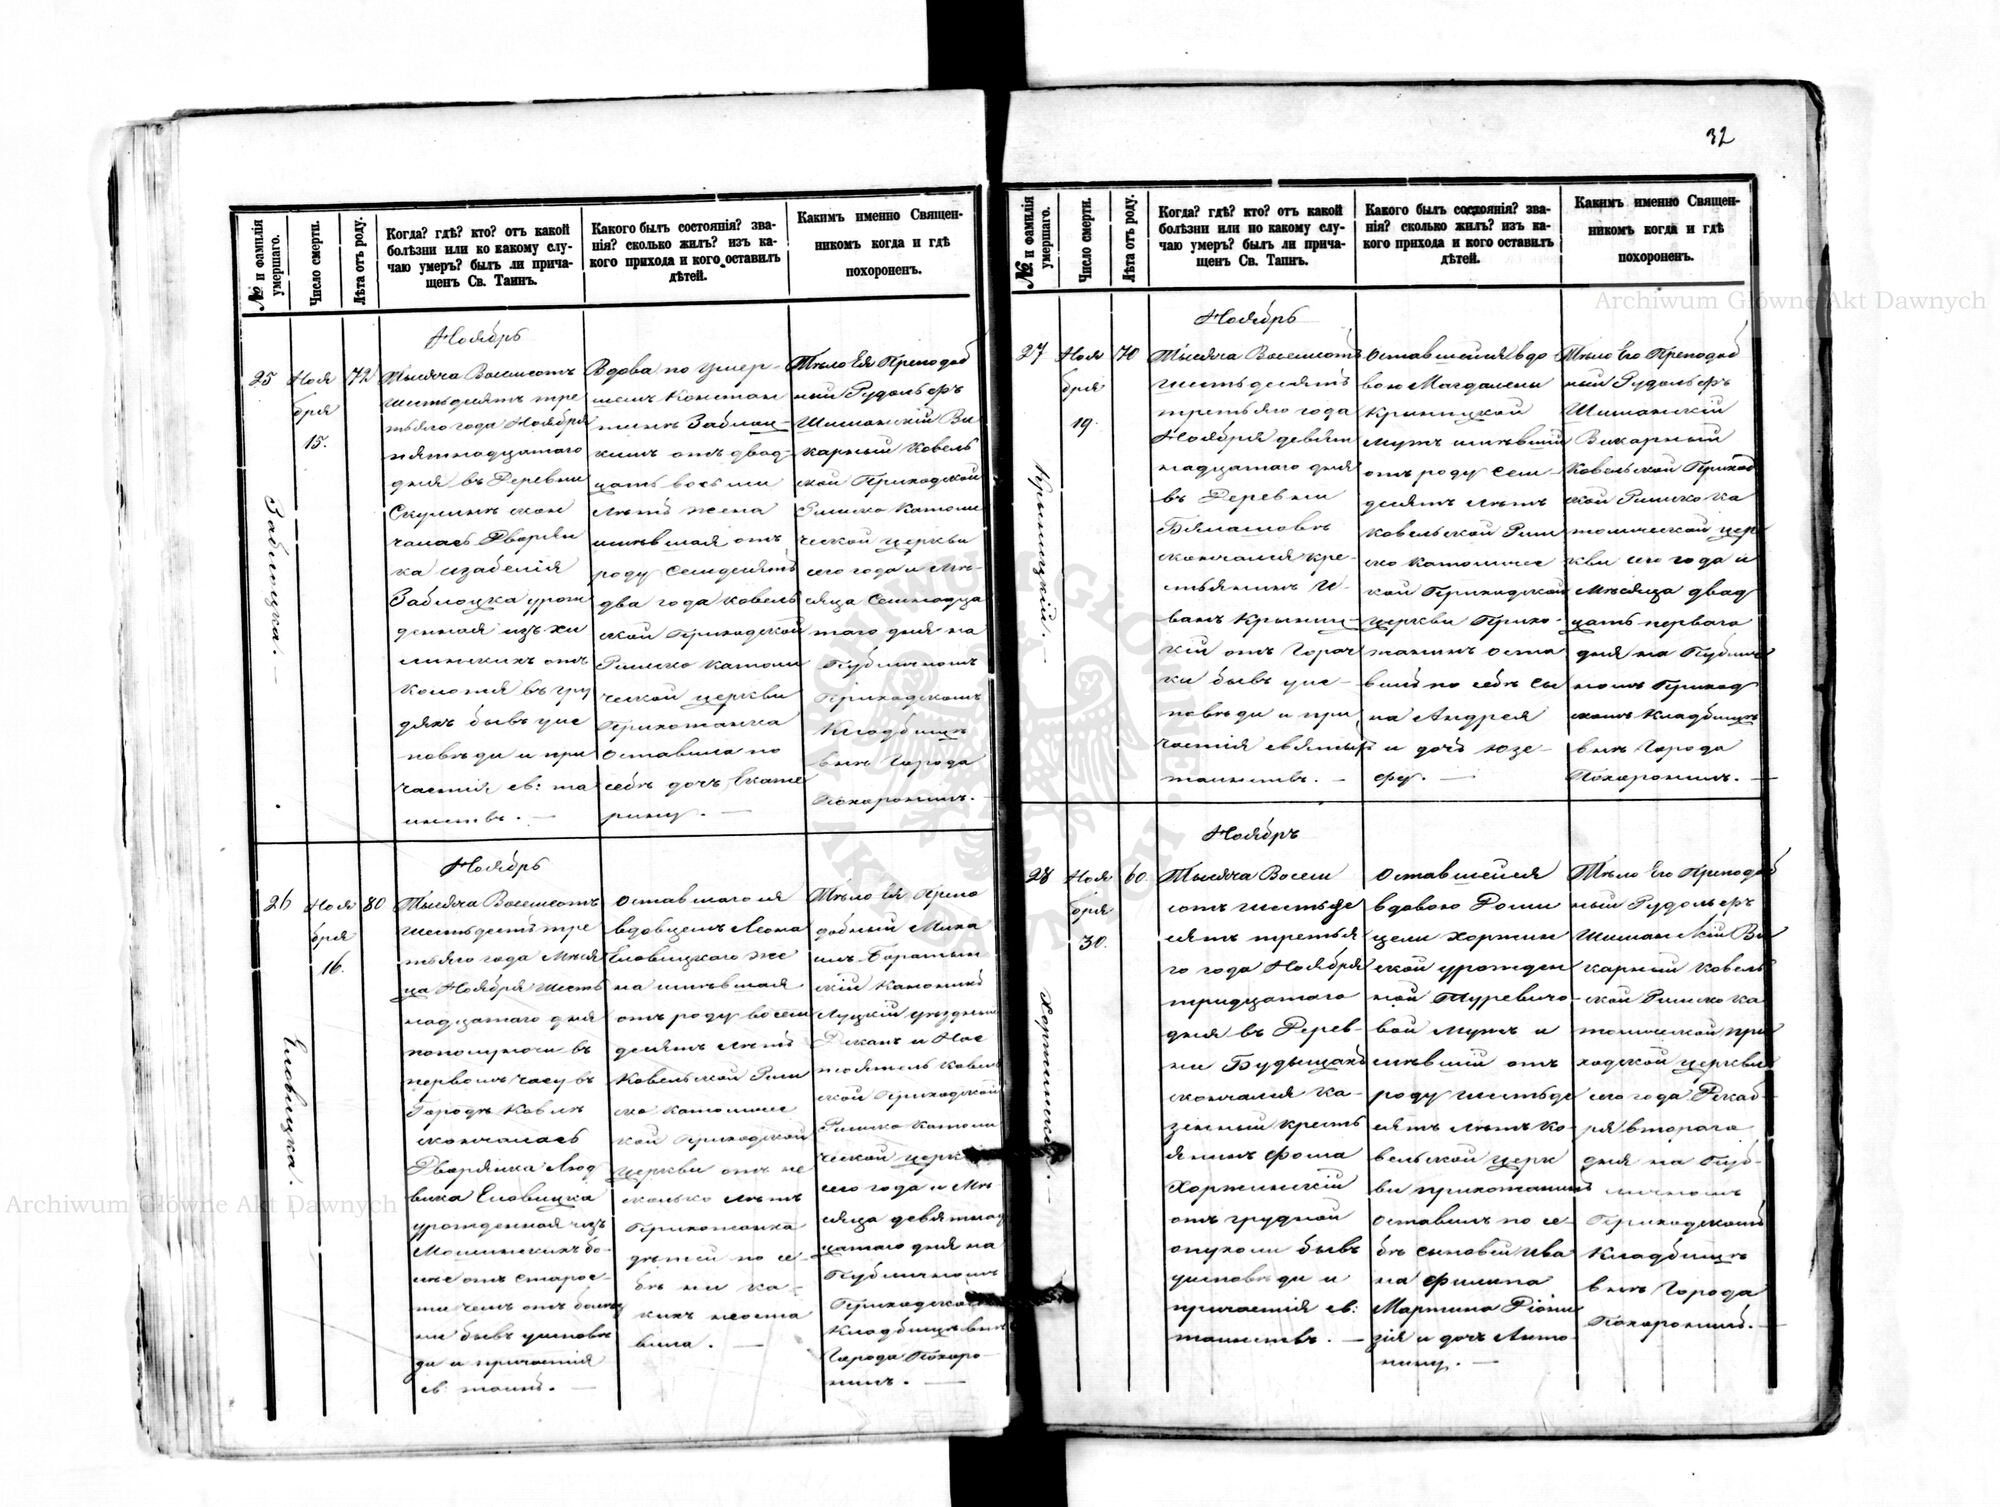 32
№ и фамилія умершаго.
Число смерти.
Лѣта отъ роду.
Когда? гдѣ? кто? отъ какой
болѣзни или ко какому слу-
чаю умеръ? былъ ли прича-
щенъ Св. Таинъ.
Какого былъ состоянія? зва-
нія? сколько жилъ? изъ ка-
кого прихода и кого оставилъ
дѣтей.
Какимъ именно Священ-
никомъ когда и гдѣ
похороненъ.
25
Заблоцка. —
Ноя
бря
15.
72
Ноябрь
Тысяча Восемсотъ
шестьдесятъ тре
тьяго года Ноября
пятнадцатого
дня въ Деревни
Скулинъ скон
чалась Дворян
ка Изабелія
Заблоцка урож
денная изъ Хи
линскихъ отъ
колотія въ гру
дяхъ бывъ уис
повѣди и при
частія св: та
инствъ. —
Вдова по умер-
шемъ Констан
тинѣ Заблоц-
кимъ отъ двад-
цать восьми
лѣтъ жена
имѣвшая отъ
роду семдесятъ
два года Ковель
ской Приходской
Римско Католи
ческой церкви
Прихожанка
Оставила по
себѣ дочь Екате
рину. —
Тѣло Ея Преподоб
ный Рудольфъ
Шиманскій Ви
карный Ковель
ской Приходской
Римско Католи
ческой церкви
сего года и Мѣ-
сяца Семнадца
таго дня на
Публичномъ
Приходскомъ
Кладбищѣ
внѣ Города
Похоронилъ. —
26
Еловицка. —
Ноя
бря
16.
80
Ноябрь
Тысяча Восемсотъ
шестьдесятъ тре
тьяго года Мѣся
ца Ноября шест
надцатаго дня
пополуночи въ
первомъ часу въ
Городѣ Ковлѣ
скончалась
Дворянка Люд
вика Еловицка
урожденная изъ
бо-
лѣе отъ старос-
ти чемъ отъ болѣз
ни бывъ уисповѣ
ди и причастія
св: таинъ. —
Оставшагося
вдовцемъ Леона
Еловицкого же
на имѣвшая
отъ роду восем
десятъ лѣтъ
Ковельской Рим
ско Католичес
кой Приходской
церкви отъ не
сколько лѣтъ
Прихожанка
дѣтей по се-
бѣ ни ка-
кихъ неоста
вила. —
Тѣло Ея Препо
добный Миха
илъ
скій Каноникъ
Луцкій уѣздный
Деканъ и Нас
тоятель Ковель
ской Приходской
Римско Католи
ческой церкви
сего года и Мѣ
сяца девятнад
цатаго дня на
Публичномъ
Приходскомъ
Кладбищѣ внѣ
Города Похоро-
нилъ. —
№ и фамилія умершаго.
Число смерти.
Лѣта отъ роду.
Когда? гдѣ? кто? отъ какой
болѣзни или но какому слу-
чаю умеръ? былъ ли прича-
щенъ Св. Таинъ.
Какого былъ состоянія? зва-
нія? сколько жилъ? изъ ка-
кого прихода и кого оставилъ
дѣтей.
Какимъ именно Священ-
никомъ когда и гдѣ
похороненъ.
27
Крыницкій. —
Ноя
бря
19.
70
Ноябрь
Тысяча Восемсотъ
шестьдесятъ
третьяго года
Ноября девят
надцатаго дня
въ Деревни
скончался кре-
стьянинъ И-
ванъ Крыниц-
кій отъ Горяч
ки бывъ уис-
повѣди и при
частія святыхъ
таинствъ. —
Оставшейся вдо
вою Магдалены
Крыницкой
мужъ имѣвшій
отъ роду сем-
десятъ лѣтъ
Ковельской Рим
ско Католичес
кой Приходской
церкви Прихо-
жанинъ оста
вилъ по себѣ сы
на Андрея
и дочь Юзе-
фу. —
Тѣло Его Преподоб
ный Рудольфъ
Шиманскій
Викарный
Ковельской Приход
ской Римско Ка
толической цер
кви сего года и
Мѣсяца двад
цать перваго
дня на Публич
номъ Приход
скомъ Кладбищѣ
внѣ Города
Похоронилъ. —
28
Хоржинскій. —
Ноя
бря
30.
60
Ноябрь
Тысяча Восем
сотъ шестьде
сятъ третья
го года Ноября
тридцатаго
дня въ Дерев-
ни Будыщахъ
скончался ка-
зенный кресть
янинъ Фома
Хоржинскій
отъ грудной
опухоли бывъ
уисповѣди и
причастія св:
таинствъ. —
Оставшейся
вдовою
цели Хоржин
ской урожден
ной Туревичо-
вой мужъ и
мѣвшій отъ
роду шестьде
сятъ лѣтъ Ко-
вельской церк
ви прихожанинъ
Оставилъ по се-
бѣ сыновей Ива
на Филипа
Мартина Діони
зія и дочь Анто-
нину. —
Тѣло Его Преподоб
ный Рудольфъ
Шиманскій Ви
карный Ковель
ской Римско Ка
толической при
ходской церкви
сего года Декаб-
ря втораго
дня на Пуб-
личномъ
Приходскомъ
Кладбищѣ
внѣ Города
Похоронилъ. —
Archiwum Główne Akt Dawnych
Archiwum Główne Akt Dawnych